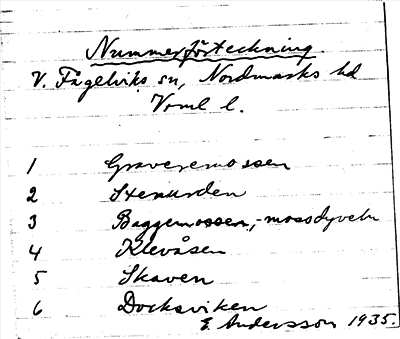 Nummerförteckning.
V. Fågelviks sn, Nordmarks hd
Vrml l.
1 Graveremossen
2 Stenurden
3 Baggemossen,-mossdyveln
4 Klevåsen
5 Skaven
6 Docksviken
E. Andersson 1935.